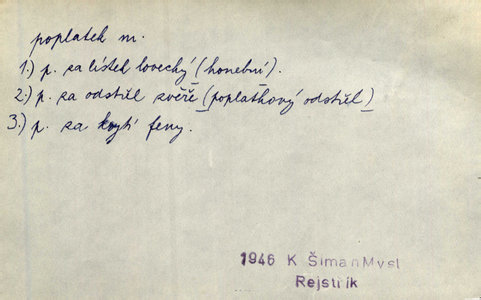 poplatek m.
1.) p. za lístek lovecký (honební).
2.) p. za odstřel zvěře (poplatkový odstřel)
3.) p. za krytí feny.
1946 K Šiman Mysl
Rejstřík